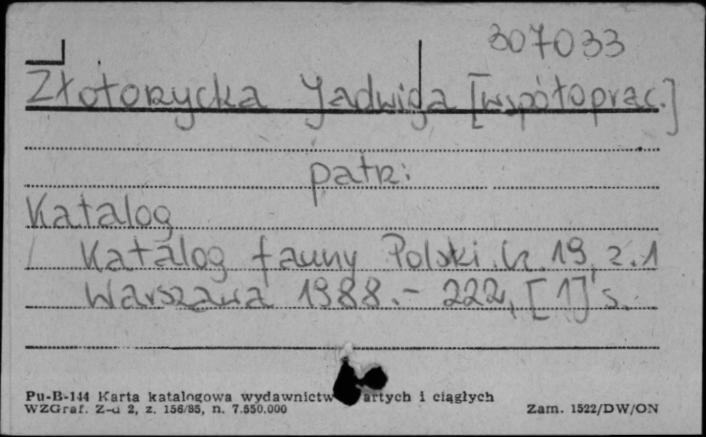 307033
Złotorycka Jadwiga [współoprac.]
patrz:
Katalog
Katalog fauny Polski. Cz. 19, z. 1
Warszawa 1988. - 222, [1] s.
Pu-B-144 Karta katalogowa wydawnictw artych i ciągłych
WZGraf. Z-d 2, z. 156/85, n. 7.550.000 Zam. 1522/DW/ON